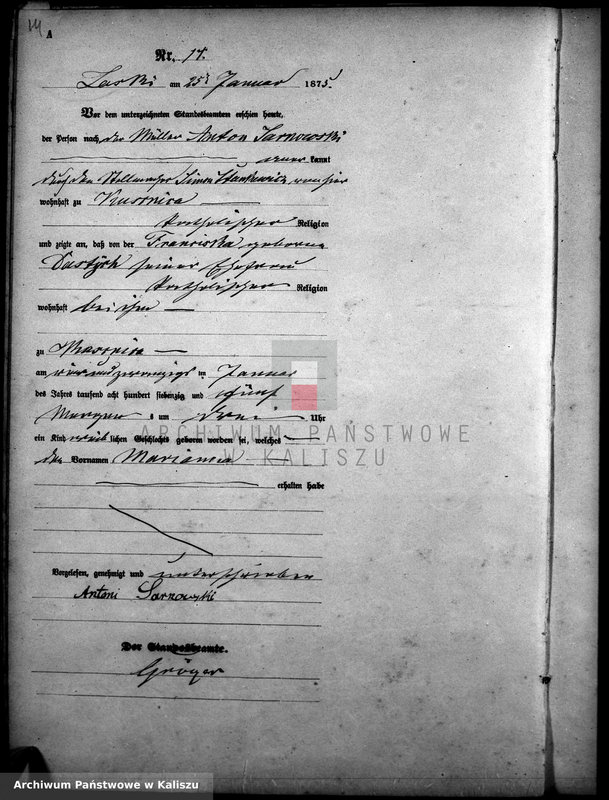 14
A
Nr. 14.
Laski am 25 Januar 1875
Vor dem unterzeichneten Standesbeamten erschien heute,
der Person nach der Müller Anton Sarnowski
kannt
durch den Stellmacher Simon
wohnhaft zu
katholischer Religion
und zeigte an, daß von der Franciska geborne
seiner Ehefrau
katholischer Religion
wohnhaft bei ihm
zu
am vier und zwanzigs ten Januar
des Jahres tausend acht hundert siebenzig und fünf
Morgens um drei Uhr
ein Kind weib lichen Geschlechts geboren worden sei, welches
den Vornamen Marianna
erhalten habe
ARCHIWUM PAŃSTWOWE
W KALISZU
Vorgelesen, genehmigt und unterschrieben
Antoni Sarnowski
Der Standesbeamte.
Gröger
Archiwum Państwowe w Kaliszu